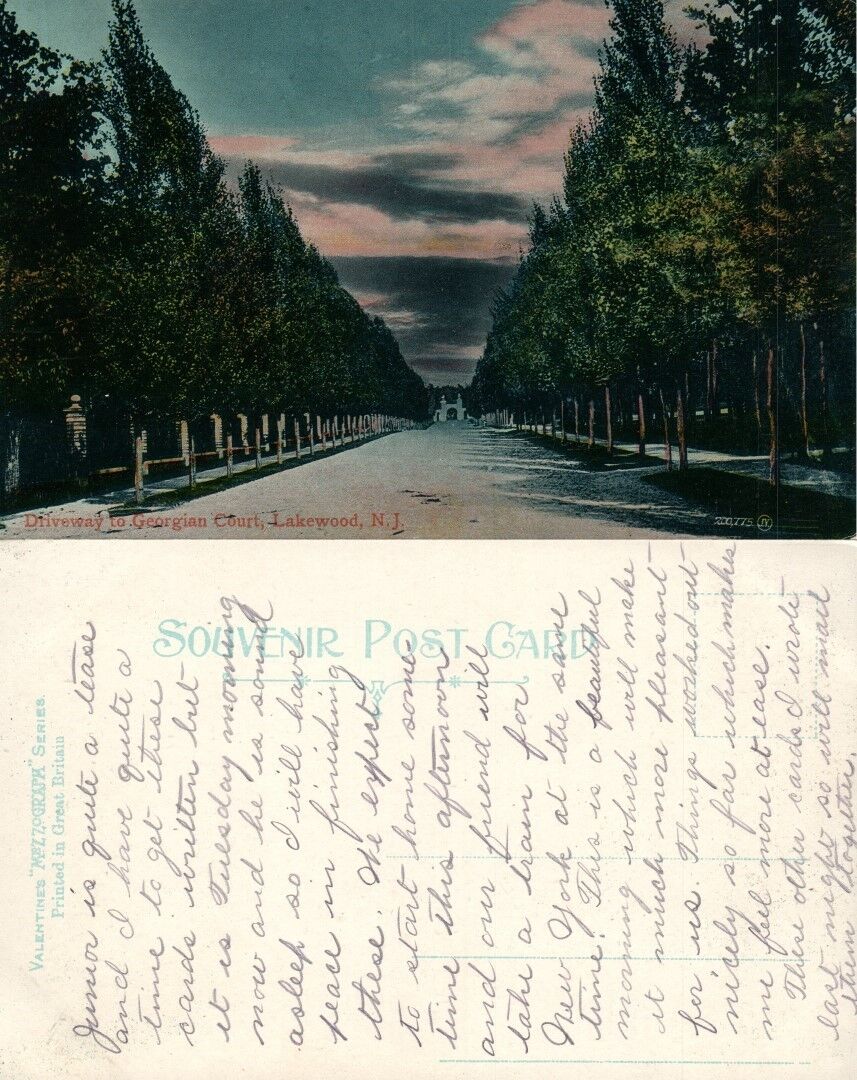 Driveway to Georgian Court, Lakewood, N.J.
200,775 IV
SOUVENIR POST CARD
VALENTINE'S "MEZZOGRAPH" SERIES.
Printed in Great Britain
Junior is quite a tease
and I have quite a
time to get these
cards written but
it is Tuesday morning
now and he is sound
asleep so I will have
peace in finishing
these. We expect
to start home some
time this afternoon
and our friend will
take a train for
New York at the same
time. This is a beautiful
morning which will make
it much more pleasant
for us. Things worked out
nicely so far which makes
me feel more at ease.
These other cards I wrote
last night so will mail
them together.